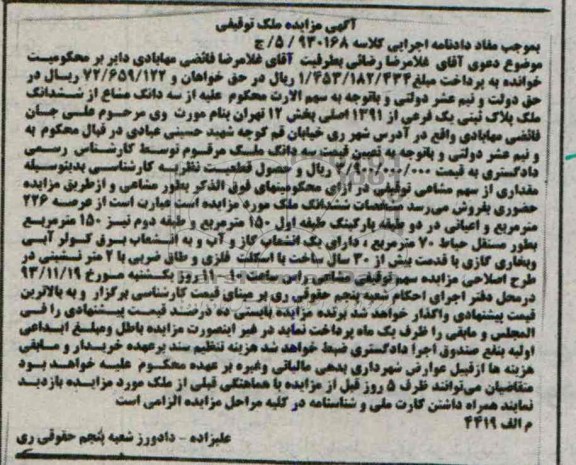 آگهی مزایده ملک توقیفی
بموجب مفاد دادنامه اجرایی کلاسه ۹۳۰۱۶۸ / ۵/ ج
موضوع دعوی آقای غلامرضا رضائی بطرفیت آقای غلامرضا فائضی مهابادی دایر بر محکومیت
خوانده به پرداخت مبلغ ۱/۴۵۳/۱۸۲/۴۳۴ ریال در حق خواهان و ۷۲/۶۵۹/۱۲۲ ریال در
حق دولت و نیم عشر دولتی و باتوجه به سهم الارث محکوم علیه از سه دانگ مشاع از ششدانگ
ملک پلاک ثبتی یک فرعی از ۱۳۹۱ اصلی بخش ۱۲ تهران بنام مورث وی مرحوم علی جان
فائضی مهابادی واقع در آدرس شهر ری خیابان قم کوچه شهید حسینی عبادی در قبال محکوم به
و نیم عشر دولتی و باتوجه به تعیین قیمت سه دانگ ملک مرقوم توسط کارشناس رسمی
دادگستری به قیمت ۰۰۰/۰۰۰ ریال و حصول قطعیت نظریه کارشناسی بدینوسیله
مقداری از سهم مشاعی توقیفی در ازای محکومیتهای فوق الذکر بطور مشاعی و ازطریق مزایده
حضوری بفروش می‌رسد مشخصات ششدانگ ملک مورد مزایده است عبارت است از عرصه ۲۲۶
مترمربع و اعیانی در دو طبقه پارکینگ طبقه اول ۱۵۰ مترمربع و طبقه دوم نیز ۱۵۰ مترمربع
بطور مستقل حیاط ۷۰ مترمربع ، دارای یک انشعاب گاز و آب و به انشعاب برق کولر آبی
وبخاری گازی با قدمت بیش از ۳۰ سال ساخت با اسکلت فلزی و طاق ضربی با ۲ متر نشینی در
طرح اصلاحی مزایده سهم توقیفی مشاعی راس ساعت ۱۰ - ۱۱ روز یکشنبه مورخ ۹۳/۱۱/۱۹
درمحل دفتر اجرای احکام شعبه پنجم حقوقی ری بر مبنای قیمت کارشناسی برگزار و به بالاترین
قیمت پیشنهادی واگذار خواهد شد برنده مزایده بایستی ده درصد قیمت پیشنهادی را فی
المجلس و مابقی را ظرف یک ماه پرداخت نماید در غیر اینصورت مزایده باطل ومبلغ ابداعی
اولیه بنفع صندوق اجرا دادگستری ضبط خواهد شد هزینه تنظیم سند برعهده خریدار و مابقی
هزینه ها ازقبیل عوارض شهرداری بدهی مالیاتی وغیره بر عهده محکوم علیه خواهد بود
متقاضیان می‌توانند ظرف ۵ روز قبل از مزایده با هماهنگی قبلی از ملک مورد مزایده بازدید
نمایند همراه داشتن کارت ملی و شناسنامه در کلیه مراحل مزایده الزامی است
م الف ۴۴۱۹
علیزاده - دادورز شعبه پنجم حقوقی ری